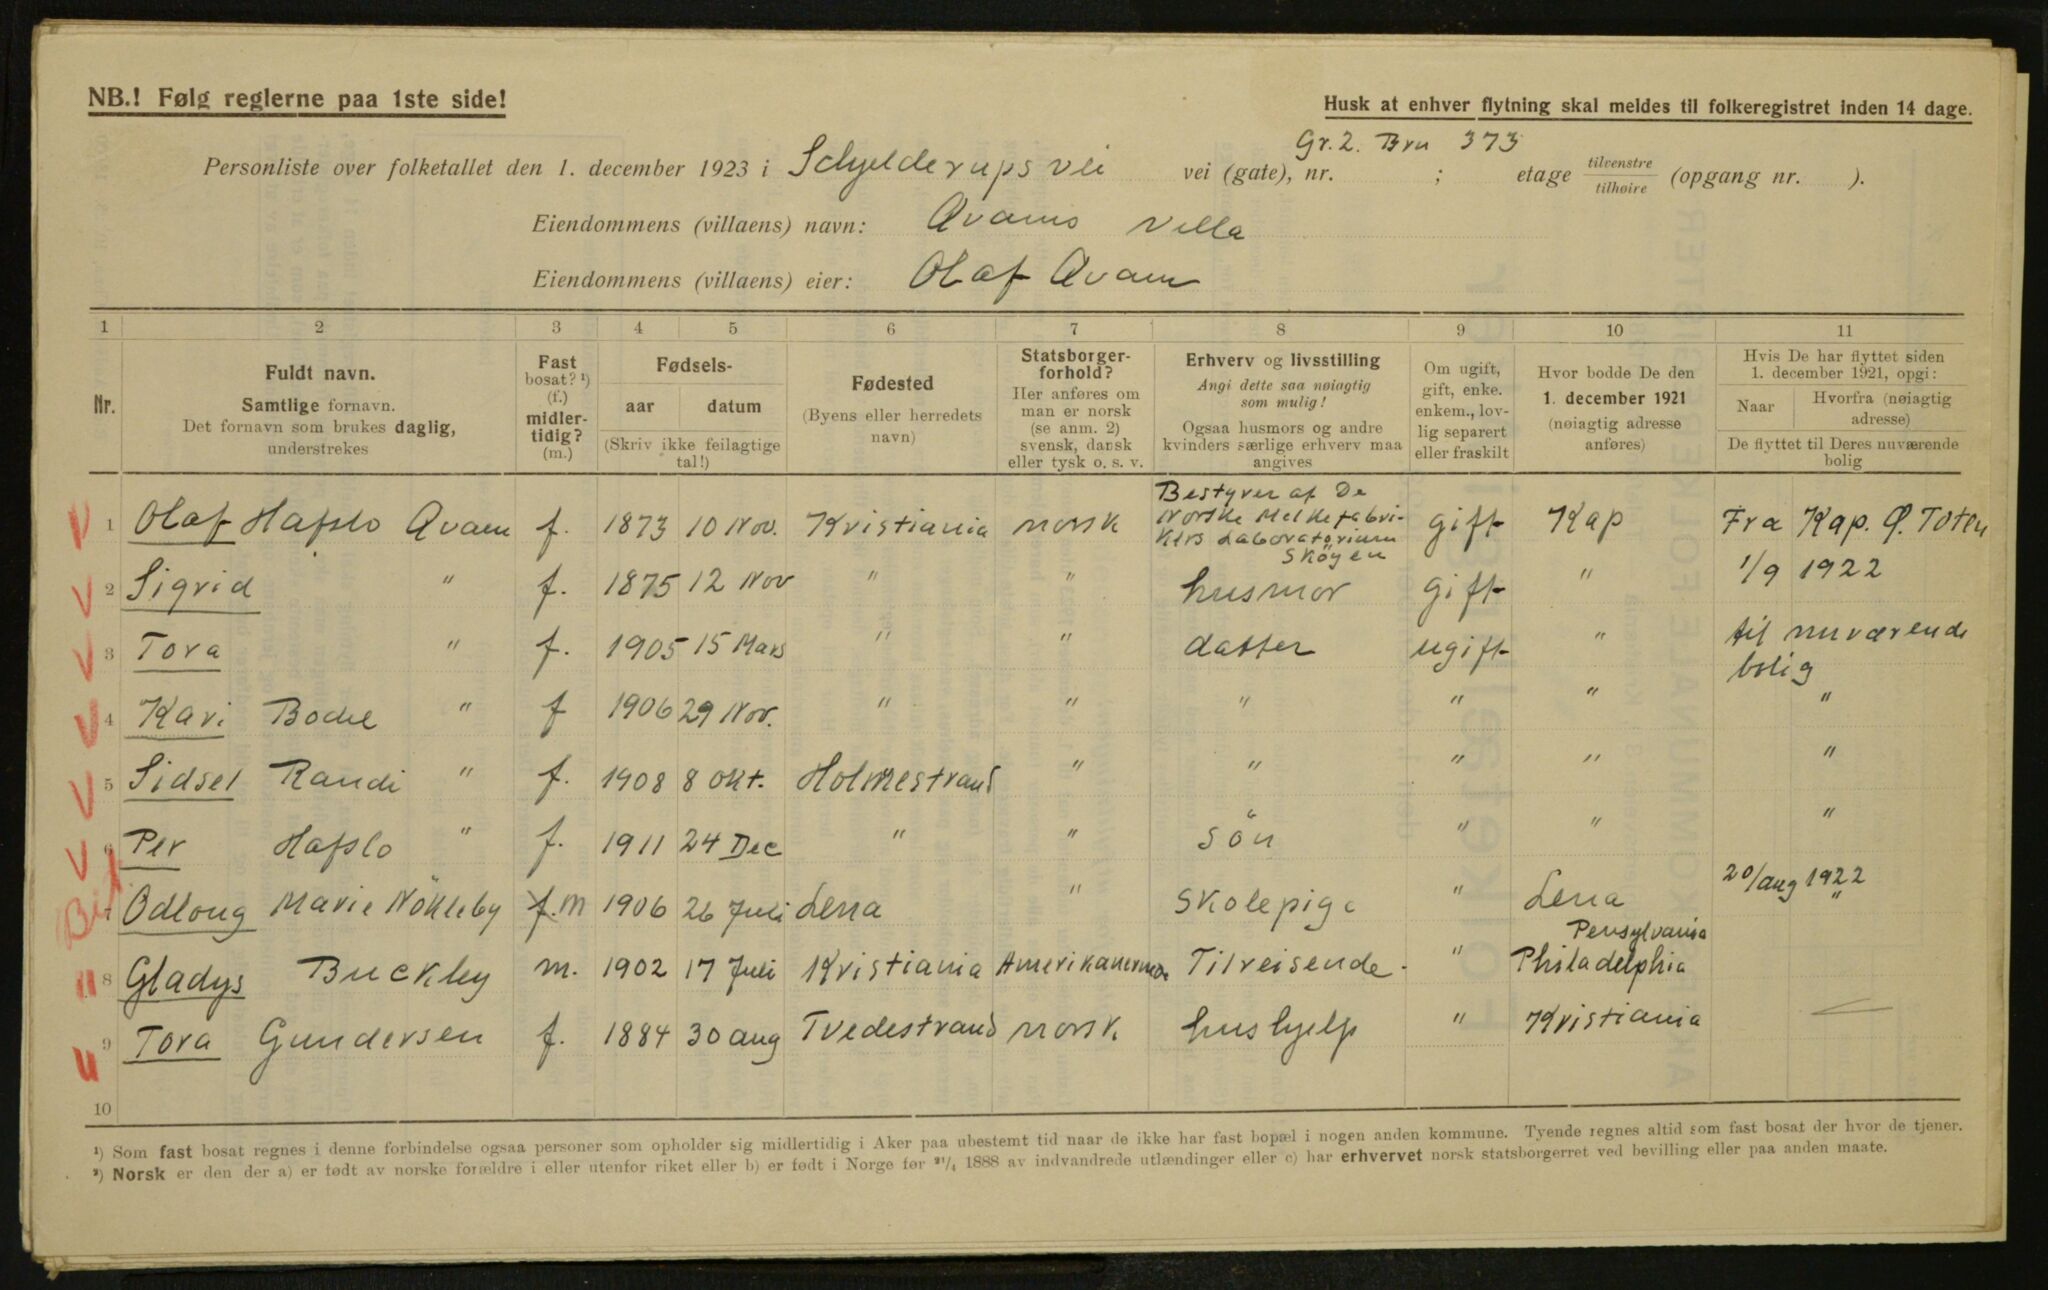 NB.! Følg reglerne paa 1ste side!
Husk at enhver flytning skal meldes til folkeregistret inden 14 dage.
Gr. 2. Bru 373
Personliste over folketallet den 1. december 1923 i Schjelderups vei vei (gate), nr. ; etage tilvenstre tilhøire (opgang nr. ).
Eiendommens (villaens) navn: Avams Villa
Eiendommens (villaens) eier: Olaf Avam
1 2 3 4 5 6 7 8 9 10 11
Nr.
Fuldt navn.
Samtlige fornavn.
Det fornavn som brukes daglig,
understrekes
Fast
bosat? ¹)
(f.)
midler-
tidig?
(m.)
Fødsels-
aar datum
(Skriv ikke feilagtige
tal!)
Fødested
(Byens eller herredets
navn)
Statsborger-
forhold?
Her anføres om
man er norsk
(se anm. 2)
svensk, dansk
eller tysk o. s. v.
Erhverv og livsstilling
Angi dette saa nøiagtig
som mulig!
Ogsaa husmors og andre
kvinders særlige erhverv maa
angives
Om ugift,
gift, enke.
enkem., lov-
lig separert
eller fraskilt
Hvor bodde De den
1. december 1921
(nøiagtig adresse
anføres)
Hvis De har flyttet siden
1. december 1921, opgi:
Naar Hvorfra (nøiagtig
adresse)
De flyttet til Deres nuværende
bolig
1 Olaf Hafslo Avam f. 1873 10 Nov. Kristiania norsk Bestyrer af De
Norske Melkefabri-
kers Laboratorium
Skøyen
gift Kap Fra Kap. Ø. Toten
2 Sigrid " f. 1875 12 Nov " " husmor gift " 1/9 1922
3 Tora " f. 1905 15 Mars " " datter ugift " til nuværende
bolig
4 Kari Bodil " f 1906 29 Nov. " " " " " "
5 Sidsel Randi " f. 1908 8 okt. Holmestrand " " " " "
6 Per Hafslo " f. 1911 24 Dec " " søn " " "
7 Odloug Marie Nökleby f. m 1906 26 Juli Lena " Skolepige " Lena 20/aug 1922 "
8 Gladys Buckley m. 1902 17 Juli Kristiania Amerikanerinde Tilreisende. " Pensylvania
Philadelphia
9 Tora Gundersen f. 1884 30 aug Tvedestrand norsk hushjelp " Kristiania
10
¹) Som fast bosat regnes i denne forbindelse ogsaa personer som opholder sig midlertidig i Aker paa ubestemt tid naar de ikke har fast bopæl i nogen anden kommune. Tyende regnes altid som fast bosat der hvor de tjener.
²) Norsk er den der a) er født av norske forældre i eller utenfor riket eller b) er født i Norge før ²¹/₄ 1888 av indvandrede utlændinger eller c) har erhvervet norsk statsborgerret ved bevilling eller paa anden maate.